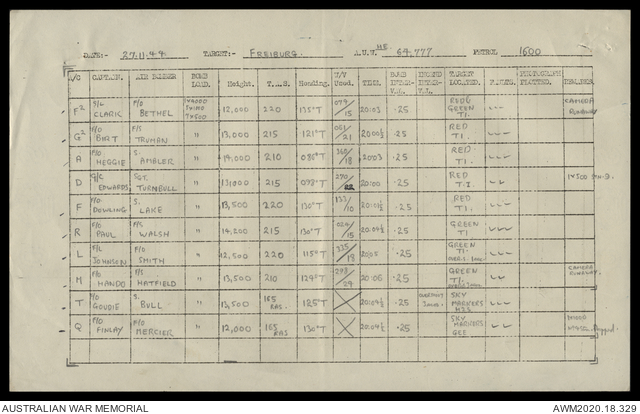 DATE:- 27.11.44 TARGET:- FREIBURG. A.U.W HE 64,777 PETROL 1600
A/C CAPTAIN. AIR BOMBER BOMB LOAD. Height. T.A.S. Heading. W/V Used. TIME. BOMB INTER-VAL. TARGET LOCATED. PHOTOGRAPH PLOTTED.
F² S/L CLARK F/O BETHEL 12,000 220 135°T 079/15 20:03 .25 RED & GREEN T.I. CAMERA RUNAWAY
G² F/O BIRT F/S TRUMAN " 13,000 215 121°T 20:00½ .25 RED T.I.
A P/O HEGGIE S. AMBLER " 14,000 210 20:03 .25 RED T.I.
D G/C EDWARDS SGT. TURNBULL " 13,000 215 20:00 .25 RED T.I.
F F/O DOWLING S. LAKE " 13,500 220 130°T .25 RED T.I.
R F/O PAUL F/S WALSH " 14,200 215 130°T .25 GREEN T.I.
L F/L JOHNSON F/O SMITH " 12,500 220 115°T 20:05 .25 GREEN T.I.
M F/O MANDO F/S HATFIELD " 13,500 210 129°T 20:06 .25 GREEN T.I. CAMERA RUNAWAY
T F/O GOUDIE S. BULL " 13,500 165 RAS. 125°T 20:04½ .25 SKY MARKERS H2S
Q F/O FINLAY F/O MERCIER " 12,000 165 RAS 130°T 20:04½ .25 SKY MARKERS GEE
AUSTRALIAN WAR MEMORIAL AWM2020.18.329